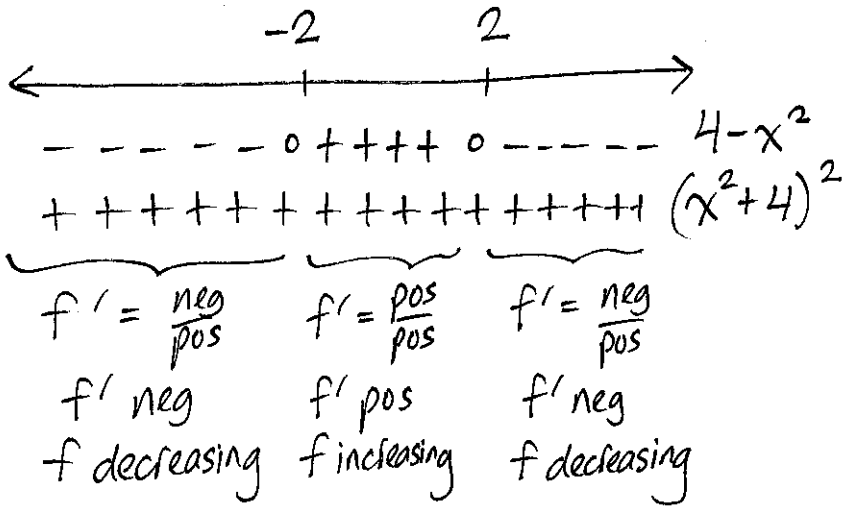 -2 2
- - - - - 0 + + + + 0 - - - - - 4-x²
+ + + + + + + + + + + + + + + + (x²+4)²
f' = neg/pos f' = pos/pos f' = neg/pos
f' neg f' pos f' neg
f decreasing f increasing f decreasing